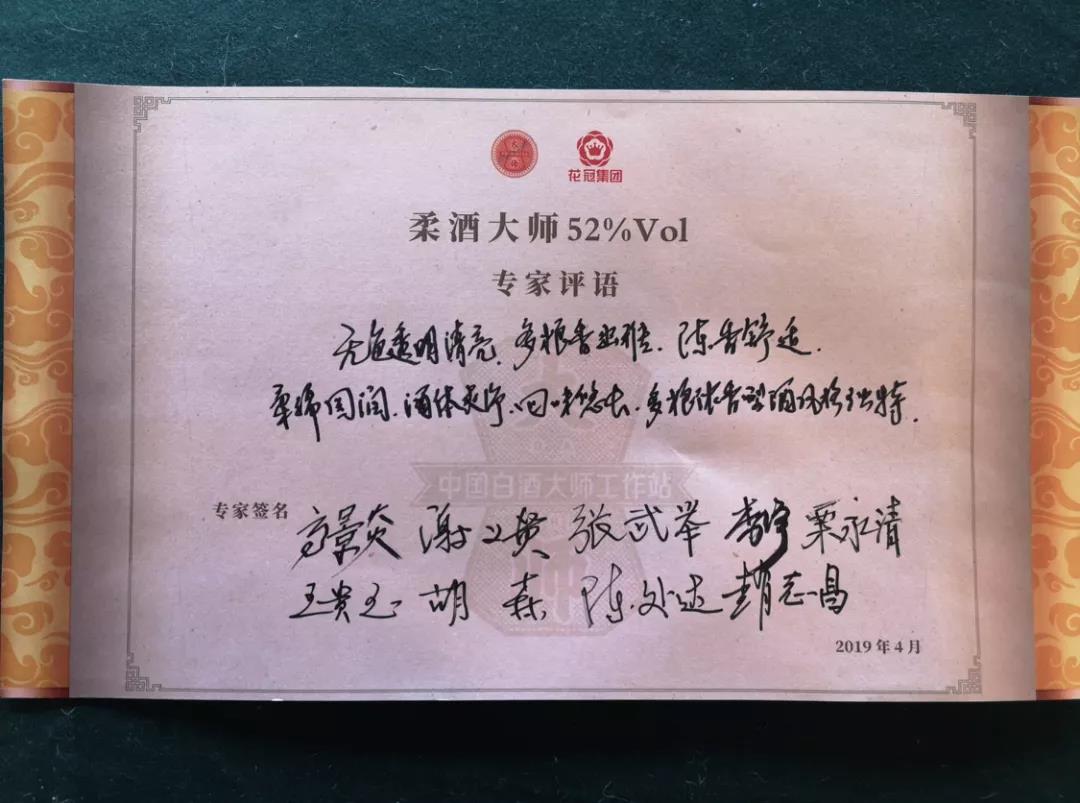 花冠集团
柔酒大师 52%Vol
专家评语
无色透明清亮、多粮香幽雅、陈香舒适、
柔绵圆润、酒体爽净、回味悠长、多粮浓香型酒风格独特.
中国白酒大师工作站
专家签名 高景炎 谢义贵 张武举 栗永清
王贵玉 胡森 陈处达 赵志昌
2019年4月